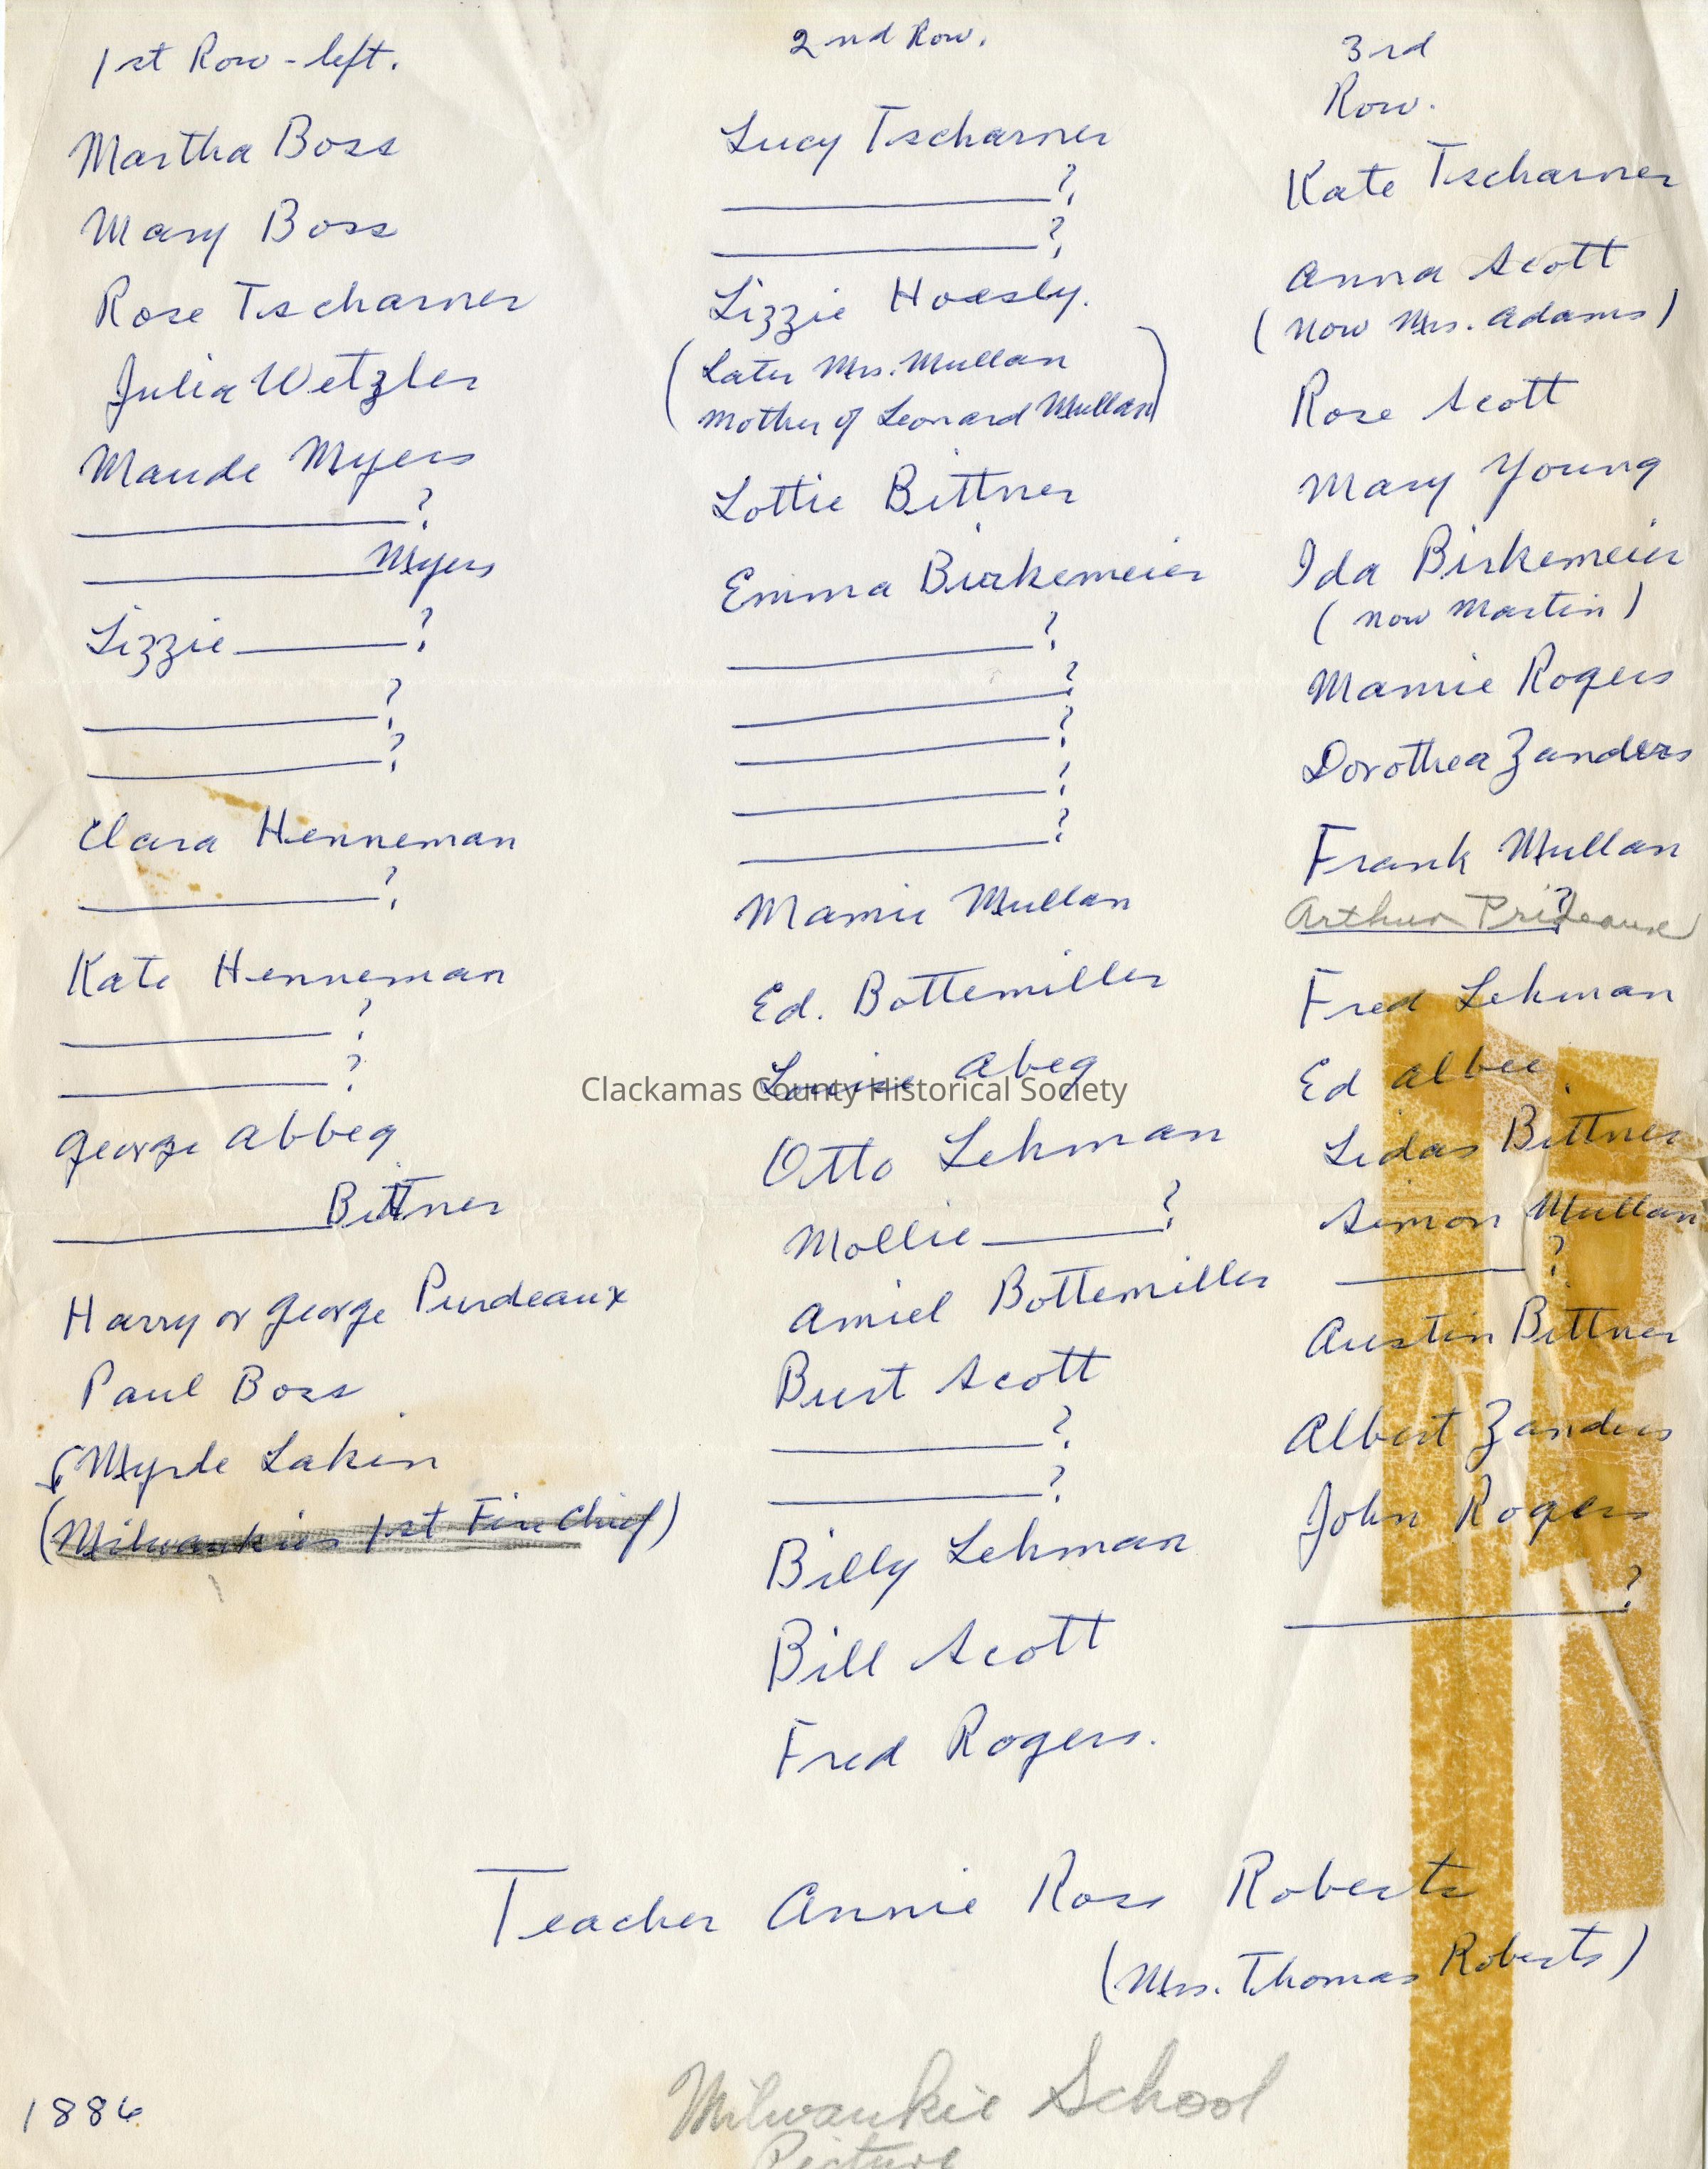 1st Row - left.
Martha Boss
Mary Boss
Rose Tscharner
Julia Wetzler
Maude Myers
__________?
__________Myers
Lizzie______?
__________?
__________?
Clara Henneman
__________?
Kate Henneman
__________?
__________?
George Abbeg
__________Bittner
Harry or George Purdeaux
Paul Boss
Myrle Lakin
(Milwaukies 1st Fire Chief)
2nd Row.
Lucy Tscharner
__________?
__________?
Lizzie Hoesly.
(Later Mrs. Mullan
Mother of Leonard Mullan)
Lottie Bittner
Emma Birkemeier
__________?
__________?
__________?
__________?
__________?
Mamie Mullan
Ed. Bottemiller
Louise Abeg
Otto Lehman
Mollie______?
Amiel Bottemiller
Burt Scott
__________?
__________?
Billy Lehman
Bill Scott
Fred Rogers.
3rd
Row.
Kate Tscharner
Anna Scott
(now Mrs. Adams)
Rose Scott
Mary Young
Ida Birkemeier
(now Martin)
Mamie Rogers
Dorothea Zanders
Frank Mullan
Arthur Prideaux ?
Fred Lehman
Ed Albee
Lidas Bittner
Simon Mullan
__________?
Austin Bittner
Albert Zanders
John Rogers
__________?
Clackamas County Historical Society
Teacher Annie Ross Roberts
(Mrs. Thomas Roberts)
1886
Milwaukie School
Picture